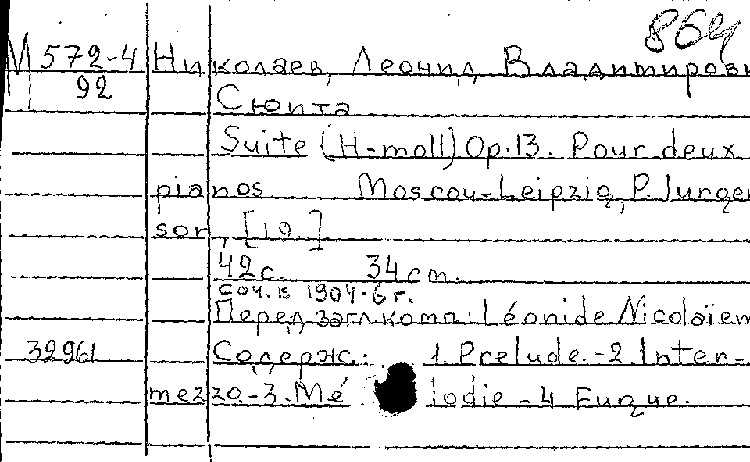 864
М 572-4 Николаев, Леонид Владимирови
92
Сюита
Suite (H-moll) Op.13. Pour deux
pianos Moscou-Leipzig, P. Jurgen
son, [19.]
42с. 34cm.
соч. в 1904-6 г.
Перед загл. кома: Léonide Nicolaïew
32961 Содерж: 1. Prelude.-2. Inter-
mezzo-3. Mélodie-4 Fugue.